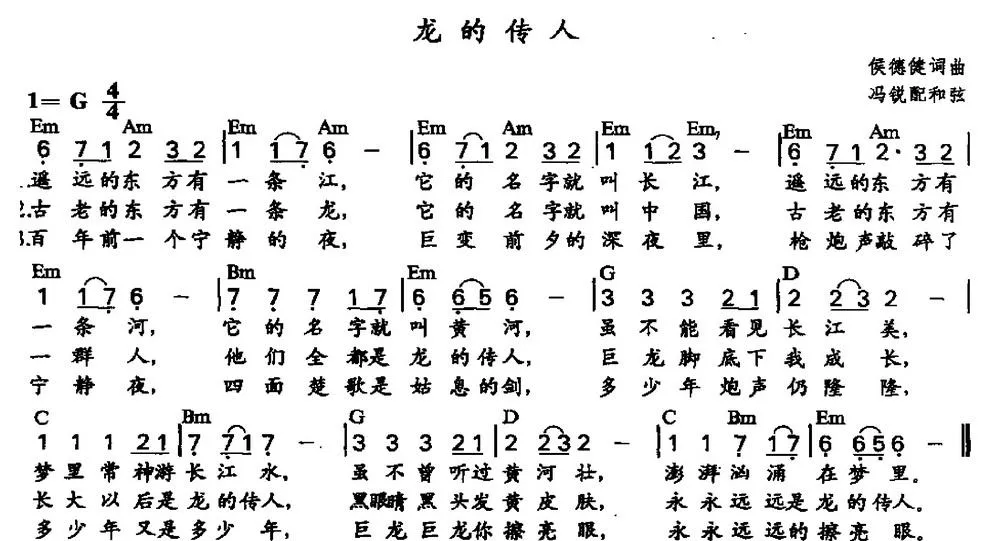 龙的传人
侯德健词曲
1= G 4/4
冯锐配和弦
Em Am Em Am Em Am Em Em7 Em Am
6 7 1 2 3 2 | 1 1 7 6 - | 6 7 1 2 3 2 | 1 1 2 3 - | 6 7 1 2· 3 2 |
1.遥远的东方有一条江, 它的名字就叫长江, 遥远的东方有
2.古老的东方有一条龙, 它的名字就叫中国, 古老的东方有
3.百年前一个宁静的夜, 巨变前夕的深夜里, 枪炮声敲碎了
Em Bm Em G D
1 1 7 6 - | 7 7 7 1 7 | 6 6 5 6 - | 3 3 3 2 1 | 2 2 3 2 -
一条河, 它的名字就叫黄河, 虽不能看见长江美,
一群人, 他们全都是龙的传人, 巨龙脚底下我成长,
宁静夜, 四面楚歌是姑息的剑, 多少年炮声仍隆隆,
C Bm G D C Bm Em
1 1 1 2 1 | 7 7 1 7 - | 3 3 3 2 1 | 2 2 3 2 - | 1 1 7 1 7 | 6 6 5 6 - ‖
梦里常神游长江水, 虽不曾听过黄河壮, 澎湃汹涌在梦里。
长大以后是龙的传人, 黑眼睛黑头发黄皮肤, 永永远远是龙的传人。
多少年又是多少年, 巨龙巨龙你擦亮眼, 永永远远的擦亮眼。